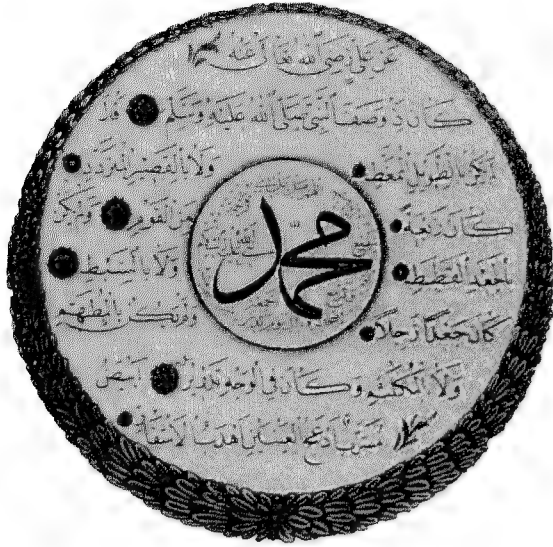 عن علي رضي الله تعالى عنه
كان إذا وصف النبي صلى الله عليه وسلم قال
لم يكن بالطويل الممغط ولا بالقصير المتردد
كان ربعة من القوم ولم يكن
بالجعد القطط ولا بالسبط
كان جعدا رجلا ولم يكن بالمطهم
ولا بالمكلثم وكان في الوجه تدوير ابيض
مشرب ادعج العينين اهدب الاشفار
محمد